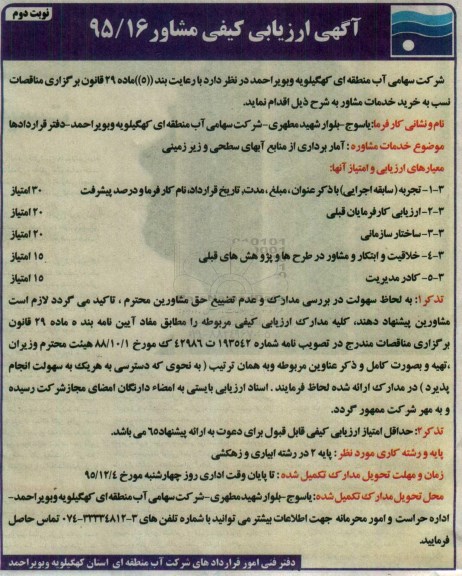 نوبت دوم
آگهی ارزیابی کیفی مشاور ۹۵/۱۶
شرکت سهامی آب منطقه ای کهگیلویه وبویراحمد در نظر دارد با رعایت بند ((۵))ماده ۲۹ قانون برگزاری مناقصات
نسب به خرید خدمات مشاور به شرح ذیل اقدام نماید.
نام و نشانی کارفرما:یاسوج-بلوار شهید مطهری-شرکت سهامی آب منطقه ای کهگیلویه وبویراحمد-دفتر قراردادها
موضوع خدمات مشاوره : آمار برداری از منابع آبهای سطحی و زیر زمینی
معیارهای ارزیابی و امتیاز آنها:
۳-۱- تجربه (سابقه اجرایی) با ذکر عنوان ، مبلغ ، مدت, تاریخ قرارداد، نام کارفرما و درصد پیشرفت ۳۰ امتیاز
۳-۲-ارزیابی کارفرمایان قبلی ۲۰ امتیاز
۳-۳-ساختار سازمانی ۲۰ امتیاز
۳-۴- خلاقیت و ابتکار و مشاور در طرح ها و پژوهش های قبلی ۱۵ امتیاز
۳-۵-کادر مدیریت ۱۵ امتیاز
تذکر۱: به لحاظ سهولت در بررسی مدارک و عدم تضییع حق مشاورین محترم ، تاکید می گردد لازم است
مشاورین پیشنهاد دهند، کلیه مدارک ارزیابی کیفی مربوطه را مطابق مفاد آیین نامه بند ه ماده ۲۹ قانون
برگزاری مناقصات مندرج در تصویب نامه شماره ۱۹۳۵۴۲ ت ۴۲۹۸۶ ک مورخ ۸۸/۱۰/۱ هیئت محترم وزیران
،تهیه و بصورت کامل و ذکر عناوین مربوطه وبه همان ترتیب ( به نحوی که دسترسی به هریک به سهولت انجام
پذیرد ) در مدارک ارائه شده لحاظ فرمایند . اسناد ارزیابی بایستی به امضاء دارنگان امضای مجاز شرکت رسیده
و به مهر شرکت ممهور گردد.
تذکر۲: حداقل امتیاز ارزیابی کیفی قابل قبول برای دعوت به ارائه پیشنهاد۶۵ می باشد.
پایه و رشته کاری مورد نظر : پایه ۲ در رشته ابیاری و زهکشی
زمان و مهلت تحویل مدارک تکمیل شده : تا پایان وقت اداری روز چهارشنبه مورخ ۹۵/۱۲/۴
محل تحویل مدارک تکمیل شده: یاسوج-بلوار شهید مطهری-شرکت سهامی آب منطقه ای کهگیلویه وبویراحمد-
اداره حراست و امور محرمانه جهت اطلاعات بیشتر می توانید با شماره تلفن های ۳-۳۳۳۳۴۸۱۲-۰۷۴ تماس حاصل
فرمایید.
دفتر فنی امور قرارداد های شرکت آب منطقه ای استان کهگیلویه وبویراحمد